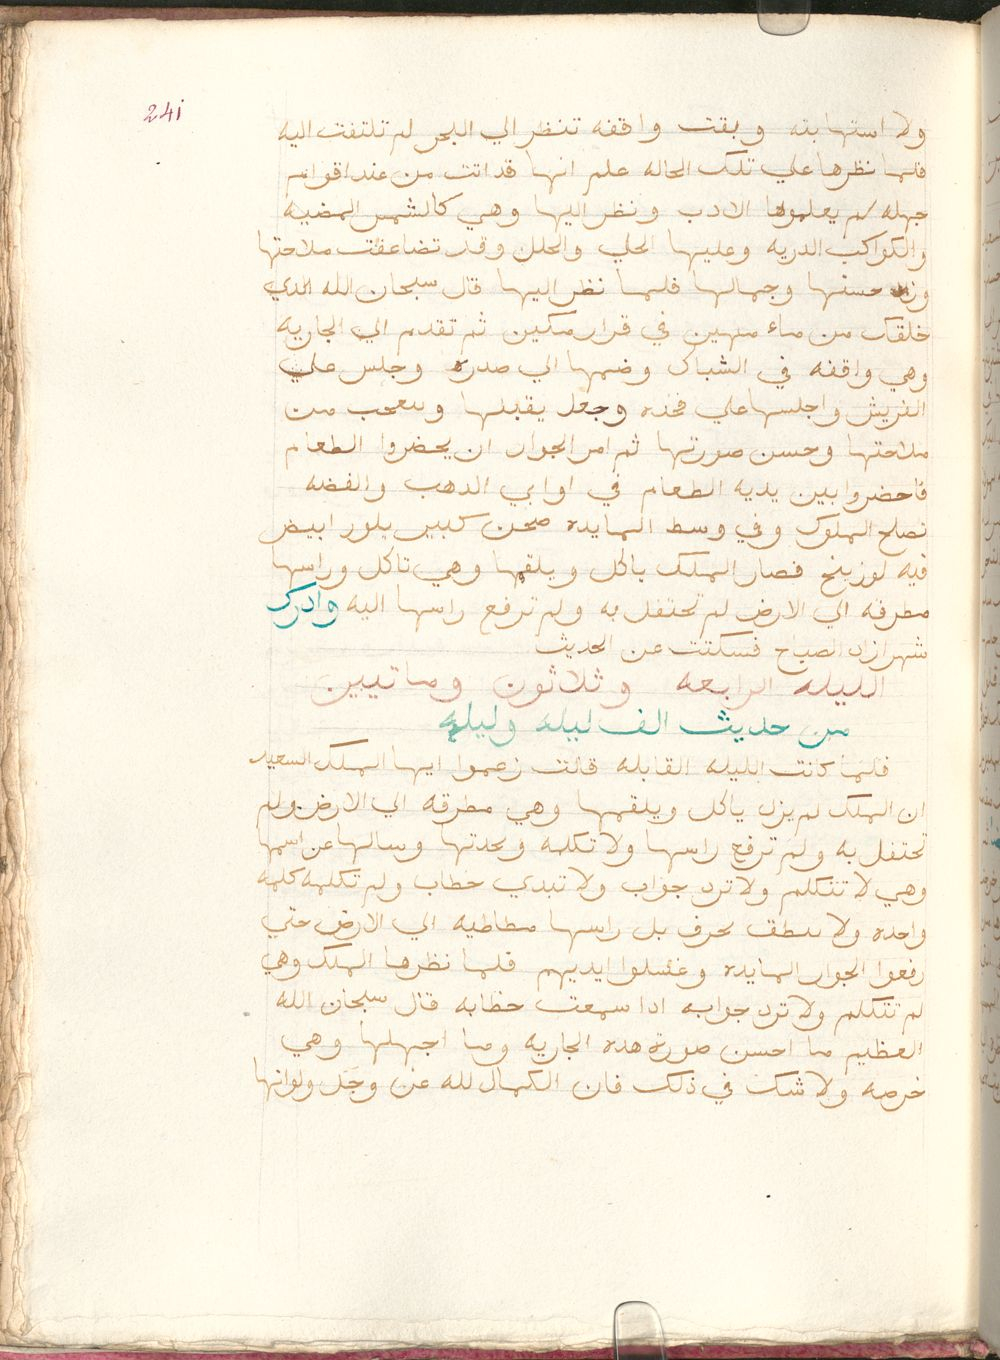 241
ولا استهابته وبقت واقفه تنظر الي البحر لم تلتفت اليه
فلما نظرها علي تلك الحاله علم انها قد اتت من عند اقوام
جهله لم يعلموها الادب ونظر اليها وهي كالشمس المضيه
والكواكب الدريه وعليها الحلي والحلل وقد تضاعفت ملاحتها
وزاد حسنها وجمالها فلما نظر اليها قال سبحان الله الذي
خلقك من ماء مهين في قرار مكين ثم تقدم الي الجاريه
وهي واقفه في الشباك وضمها الي صدره وجلس علي
الفريش واجلسها علي فخذه وجعل يقبلها ويتعجب من
ملاحتها وحسن صورتها ثم امر الجوار ان يحضروا الطعام
فاحضروا بين يديه الطعام في اواني الدهب والفضه
تصلح الملوك وفي وسط المايده صحن كبير بلور ابيض
فيه لوزينج فصار الملك ياكل ويلقمها وهي تاكل وراسها
مطرقه الي الارض لم تحتفل به ولم ترفع راسها اليه وادرك
شهرازاد الصباح فسكتت عن الحديث
الليله الرابعه وثلاثون وماتيين
من حديث الف ليله وليله
فلما كانت الليله القابله قالت زعموا ايها الملك السعيد
ان الملك لم يزل ياكل ويلقمها وهي مطرقه الي الارض ولم
تحتفل به ولم ترفع راسها ولا تكلمه ويحدتها وسالها عن اسمها
وهي لا تتكلم ولا ترد جواب ولا تبدي خطاب ولم تكلمه كلمه
واحده ولا تنطق بحرف بل راسها مطاطيه الي الارض حتي
رفعوا الجوار المايده وغسلوا ايديهم فلما نظرها الملك وهي
لم تتكلم ولا ترد جوابه ادا سمعت خطابه قال سبحان الله
العظيم ما احسن صورة هده الجاريه وما اجهلها وهي
خرصه ولا شك في ذلك فان الكمال لله عز وجل ولو انها